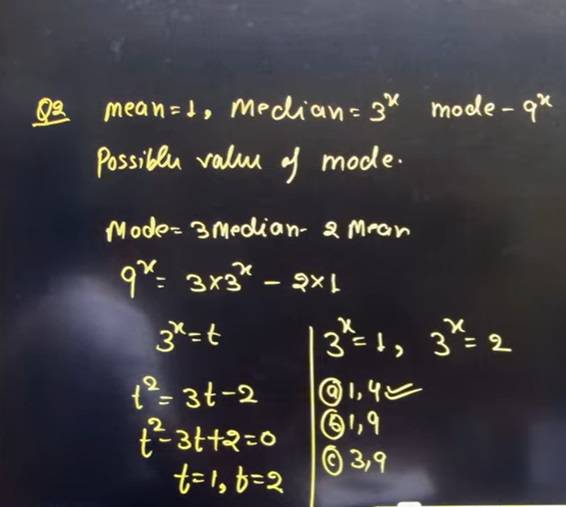 Q2 mean=1, Median=3ˣ mode-9ˣ
Possible value of mode.
Mode=3Median-2Mean
9ˣ=3×3ˣ-2×1
3ˣ=t
t²=3t-2
t²-3t+2=0
t=1, t=2
3ˣ=1, 3ˣ=2
ⓐ1,4✓
ⓑ1,9
ⓒ3,9